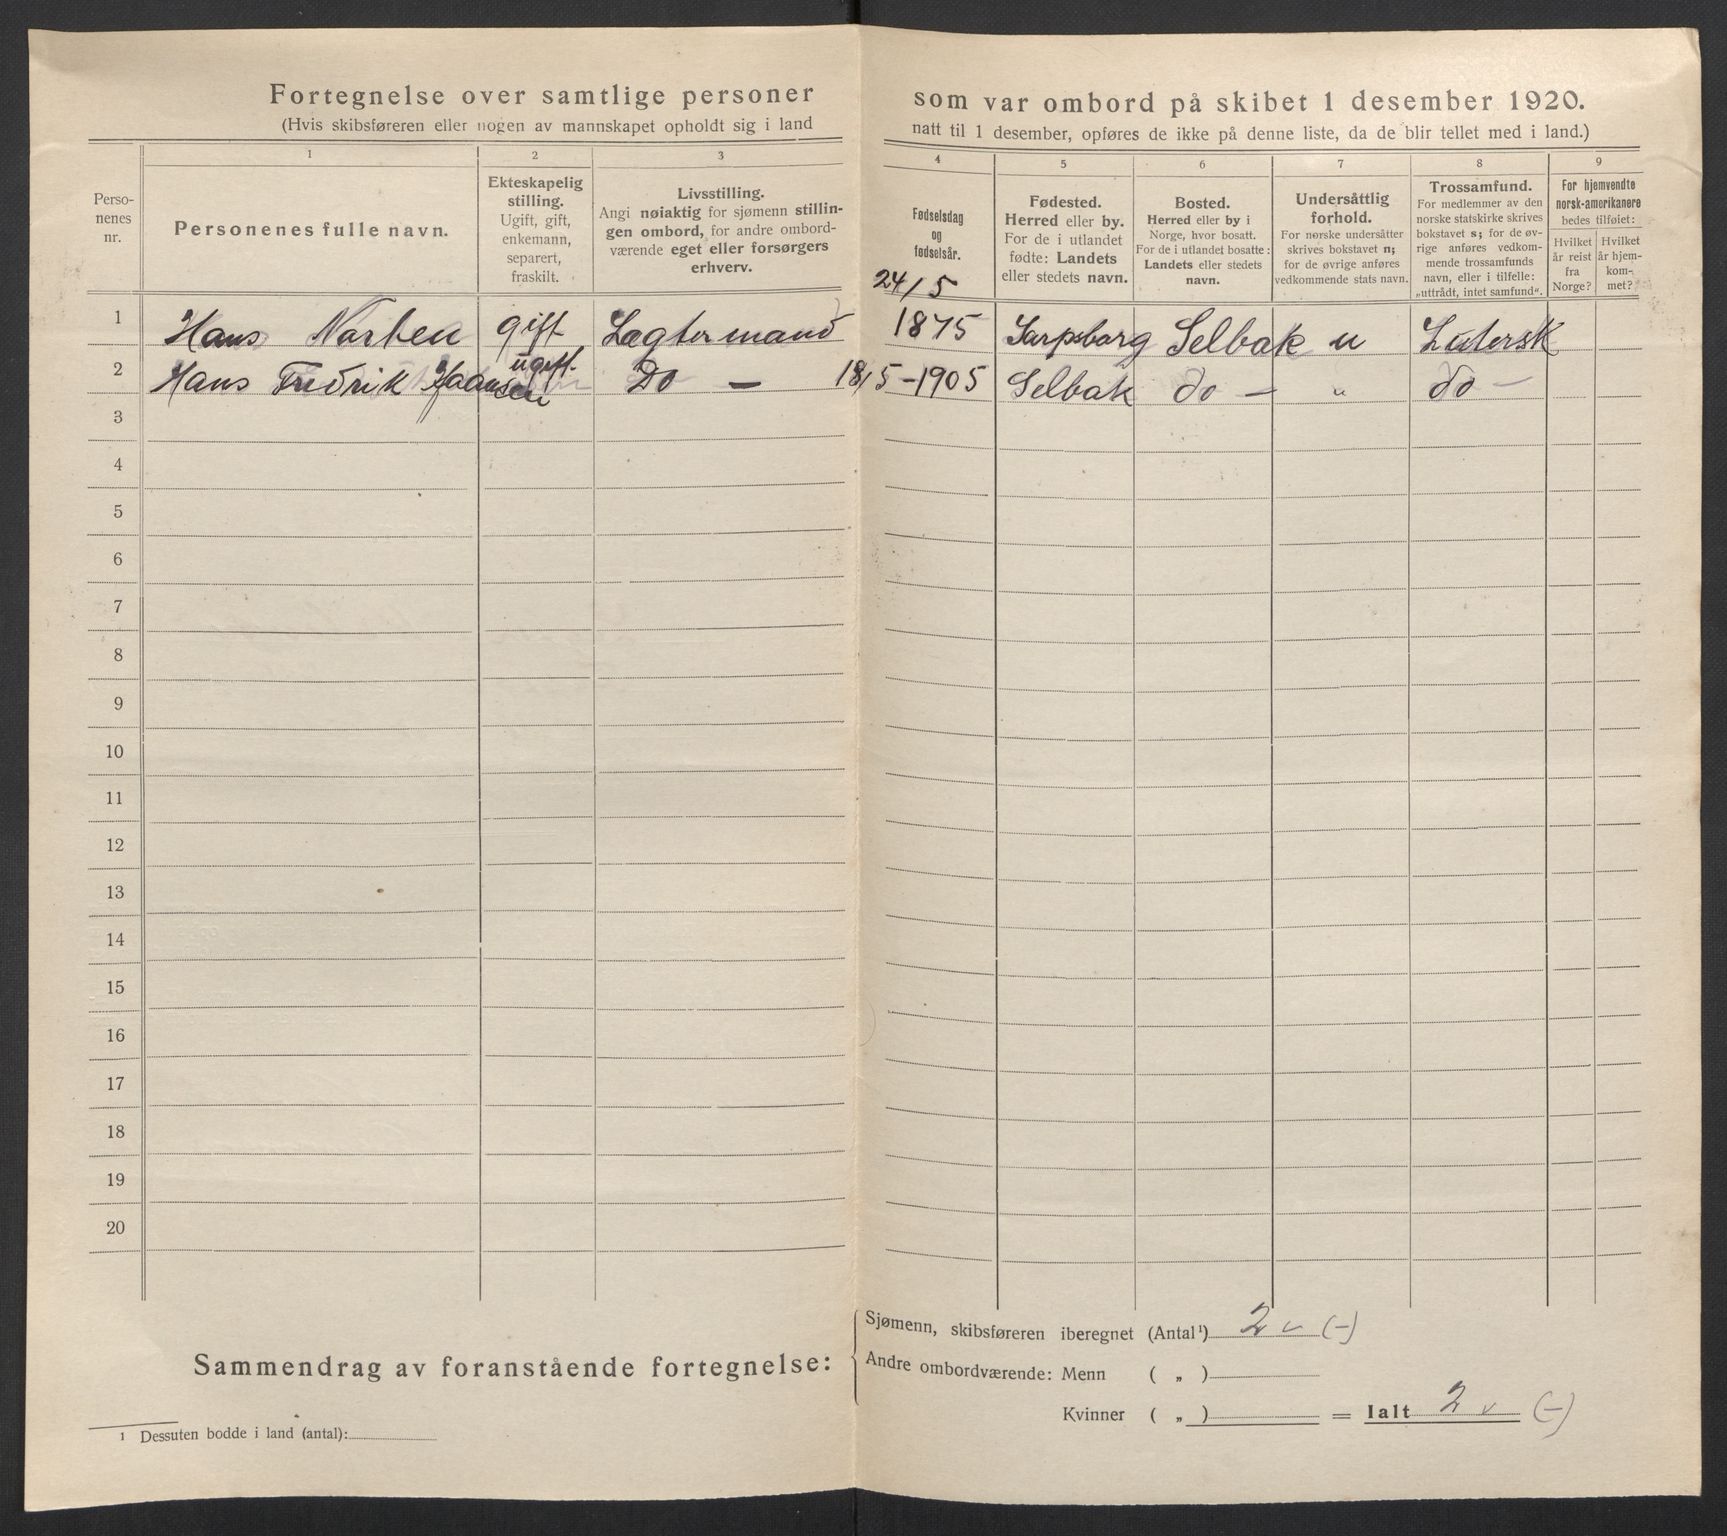 Fortegnelse over samtlige personer som var ombord på skibet 1 desember 1920.
(Hvis skibsføreren eller nogen av mannskapet opholdt sig i land natt til 1 desember, opføres de ikke på denne liste, da de blir tellet med i land.)
Perso-
nenes
nr.
1
Personenes fulle navn.
2
Ekteskapelig
stilling.
Ugift, gift,
enkemann,
separert,
fraskilt.
3
Livsstilling.
Angi nøiaktig for sjømenn stillin-
gen ombord, for andre ombord-
værende eget eller forsørgers
erhverv.
4
Fødselsdag
og
fødselsår.
5
Fødested.
Herred eller by.
For de i utlandet
fødte: Landets
eller stedets navn.
6
Bosted.
Herred eller by i
Norge, hvor bosatt.
For de i utlandet bosatte:
Landets eller stedets
navn.
7
Undersåttlig
forhold.
For norske undersåtter
skrives bokstavet n;
for de øvrige anføres
vedkommende stats navn.
8
Trossamfund.
For medlemmer av den
norske statskirke skrives
bokstavet s; for de øv-
rige anføres vedkom-
mende trossamfunds
navn, eller i tilfelle:
„uttrådt, intet samfund“.
9
For hjemvendte
norsk-amerikanere
bedes tilføiet:
Hvilket
år reist
fra
Norge?
Hvilket
år hjem-
kom-
met?
24/5
1 Hans gift Lagtermand 1875 Sarpsborg Selbak n Lutersk
2 Hans Fredrik Haansen ugift. Do — 18/5-1905 Selbak do — " do —
3
4
5
6
7
8
9
10
11
12
13
14
15
16
17
18
19
20
Sammendrag av foranstående fortegnelse:
Sjømenn, skibsføreren iberegnet (Antal¹) 2 v (-)
Andre ombordværende: Menn ( „ )
Kvinner ( „ ) = Ialt 2 v (-)
1 Dessuten bodde i land (antal):